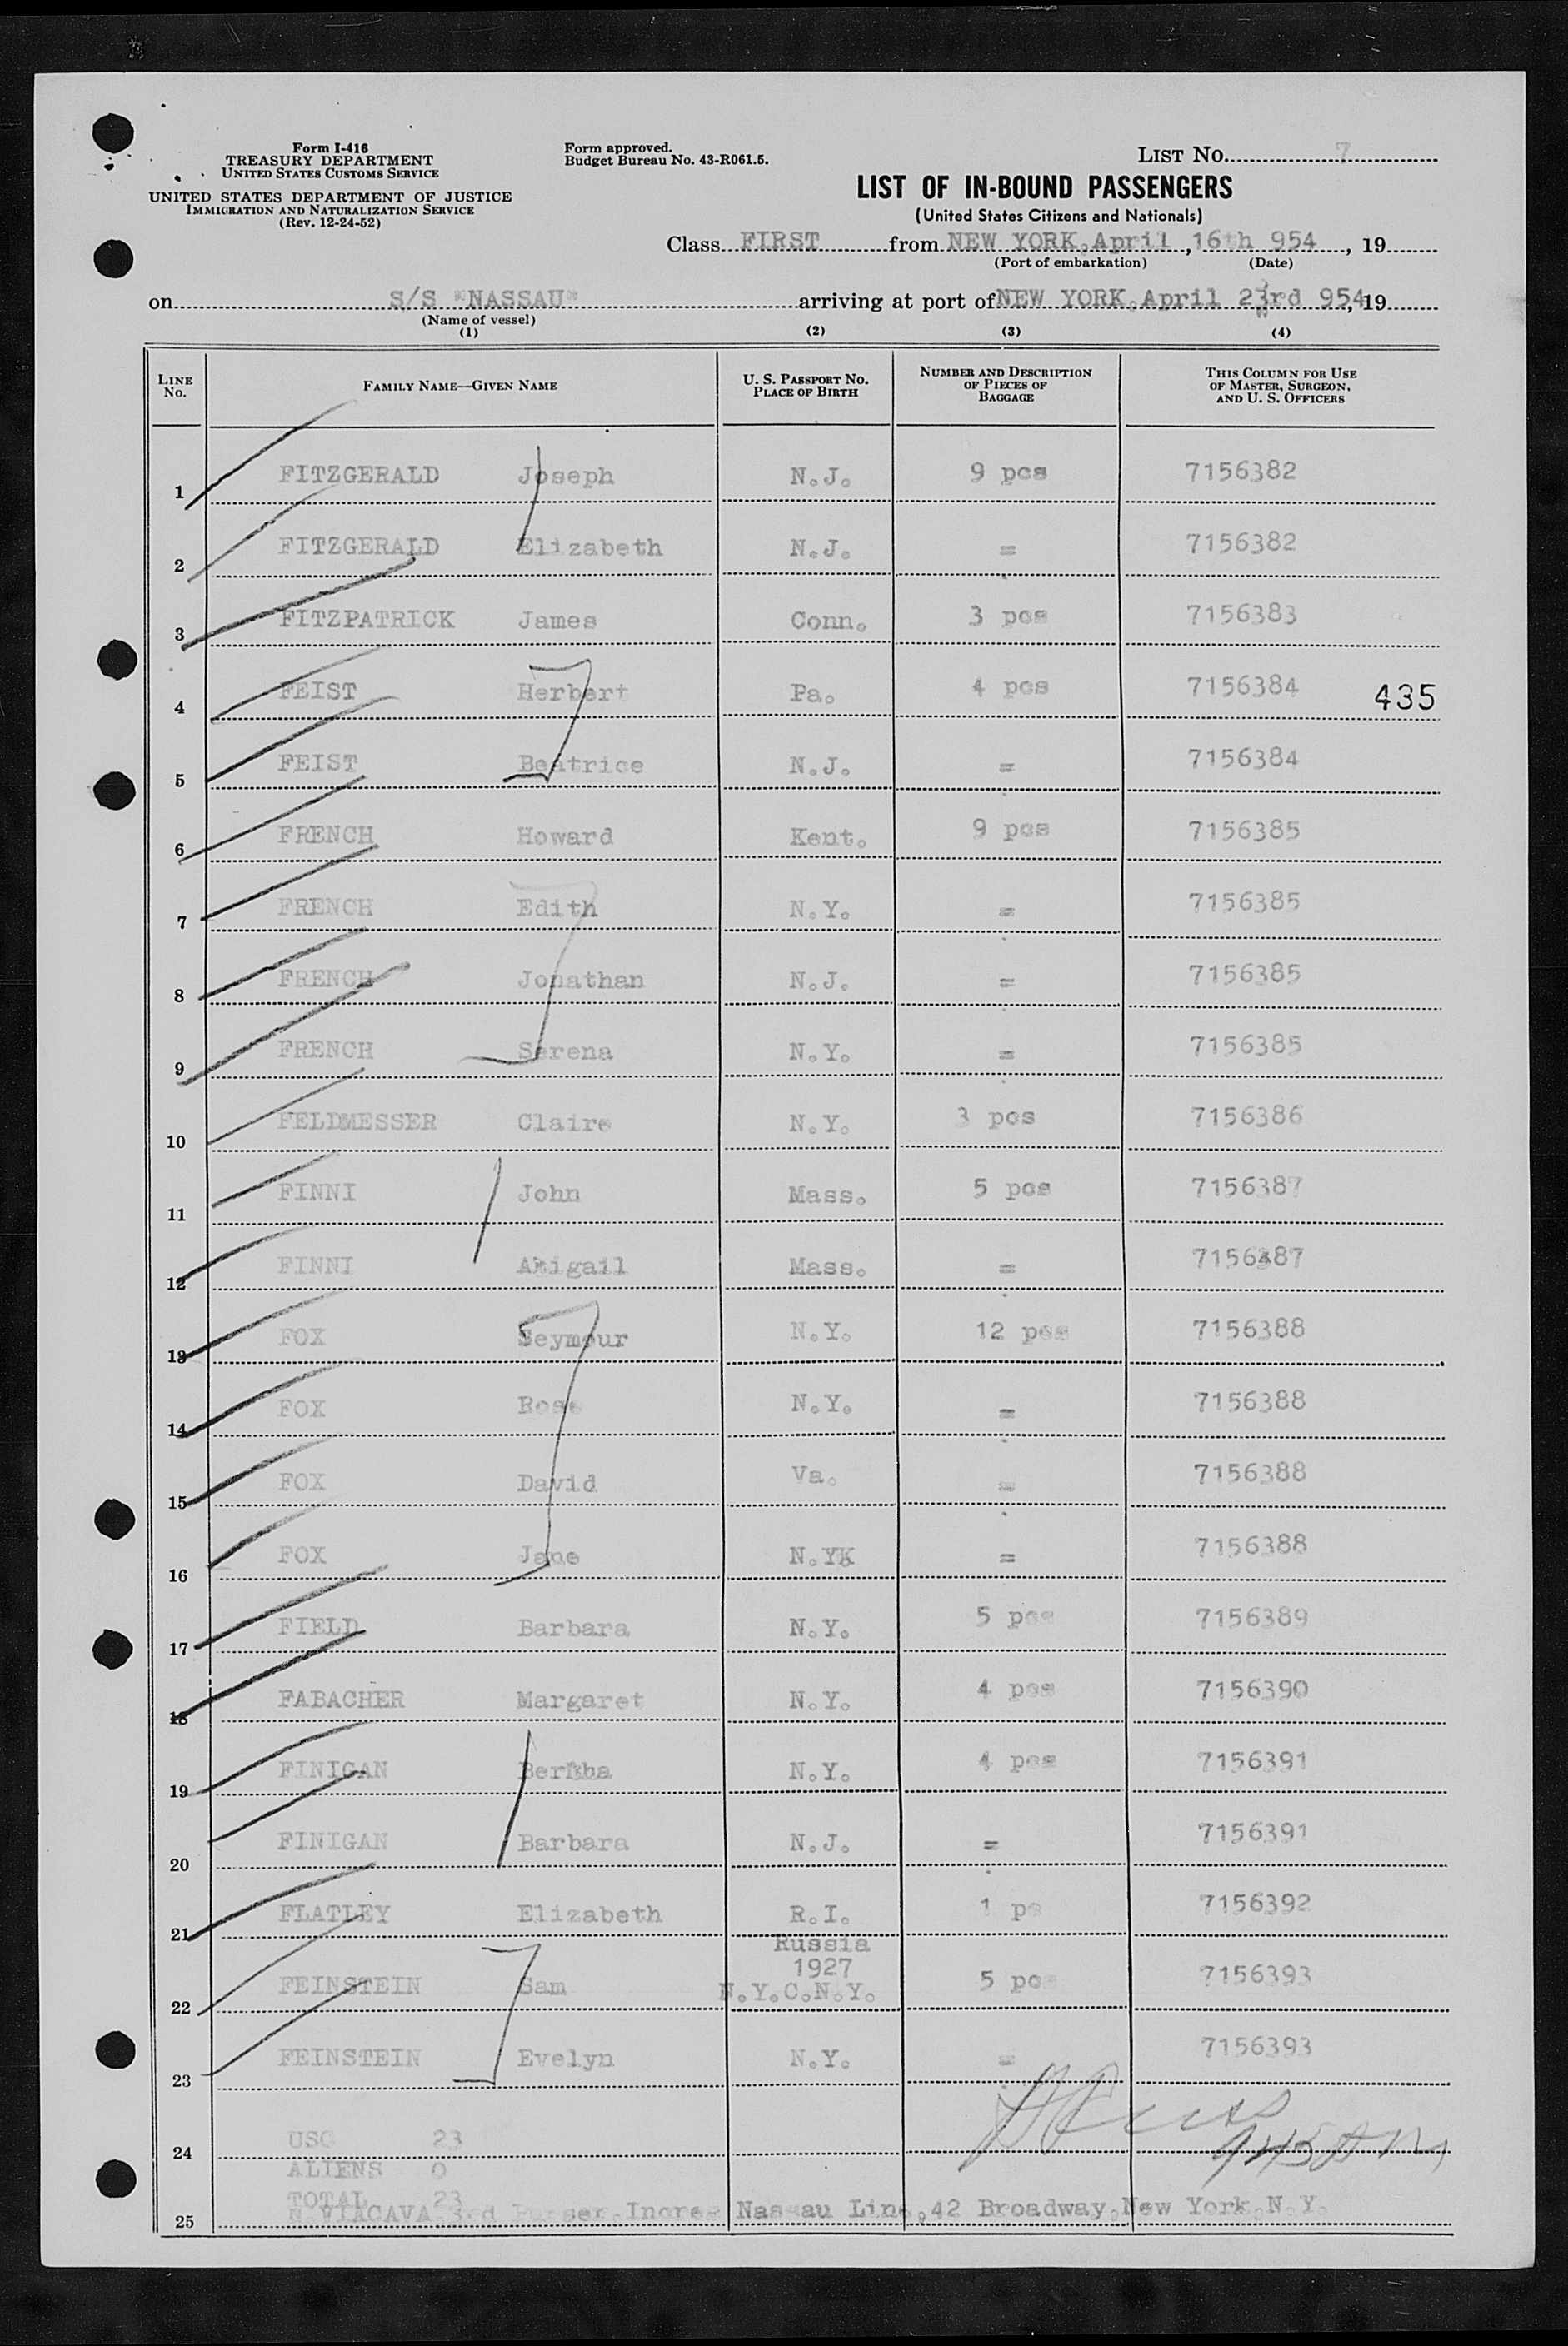 Form I-416
TREASURY DEPARTMENT
UNITED STATES CUSTOMS SERVICE
UNITED STATES DEPARTMENT OF JUSTICE
IMMIGRATION AND NATURALIZATION SERVICE
(Rev. 12-24-52)
Form approved.
Budget Bureau No. 43-R061.5.
LIST NO. 7
LIST OF IN-BOUND PASSENGERS
(United States Citizens and Nationals)
Class FIRST from NEW YORK, April, 16th 954, 19
(Port of embarkation) (Date)
on S/S "NASSAU" arriving at port of NEW YORK, April 23rd 954, 19
(Name of vessel)
(1) (2) (3) (4)
LINE NO. FAMILY NAME—GIVEN NAME U. S. PASSPORT NO. PLACE OF BIRTH NUMBER AND DESCRIPTION OF PIECES OF BAGGAGE THIS COLUMN FOR USE OF MASTER, SURGEON, AND U. S. OFFICERS
1 FITZGERALD Joseph N.J. 9 pcs 7156382
2 FITZGERALD Elizabeth N.J. = 7156382
3 FITZPATRICK James Conn. 3 pcs 7156383
4 FEIST Herbert Pa. 4 pcs 7156384 435
5 FEIST Beatrice N.J. = 7156384
6 FRENCH Howard Kent. 9 pcs 7156385
7 FRENCH Edith N.Y. = 7156385
8 FRENCH Jonathan N.J. = 7156385
9 FRENCH Serena N.Y. = 7156385
10 FELDMESSER Claire N.Y. 3 pcs 7156386
11 FINNI John Mass. 5 pcs 7156387
12 FINNI Abigail Mass. = 7156387
13 FOX Seymour N.Y. 12 pcs 7156388
14 FOX Rose N.Y. = 7156388
15 FOX David Va. = 7156388
16 FOX Jane N.Y. = 7156388
17 FIELD Barbara N.Y. 5 pcs 7156389
18 FABACHER Margaret N.Y. 4 pcs 7156390
19 FINIGAN Bertha N.Y. 4 pcs 7156391
20 FINIGAN Barbara N.J. = 7156391
21 FLATLEY Elizabeth R.I. 1 pc 7156392
Russia
1927
22 FEINSTEIN Sam N.Y.C.N.Y. 5 pc 7156393
23 FEINSTEIN Evelyn N.Y. = 7156393
24 USC 23
ALIENS 0
TOTAL 23
945 AM
25 N. VIACAVA 3rd Purser. Incres Nassau Line, 42 Broadway, New York, N.Y.